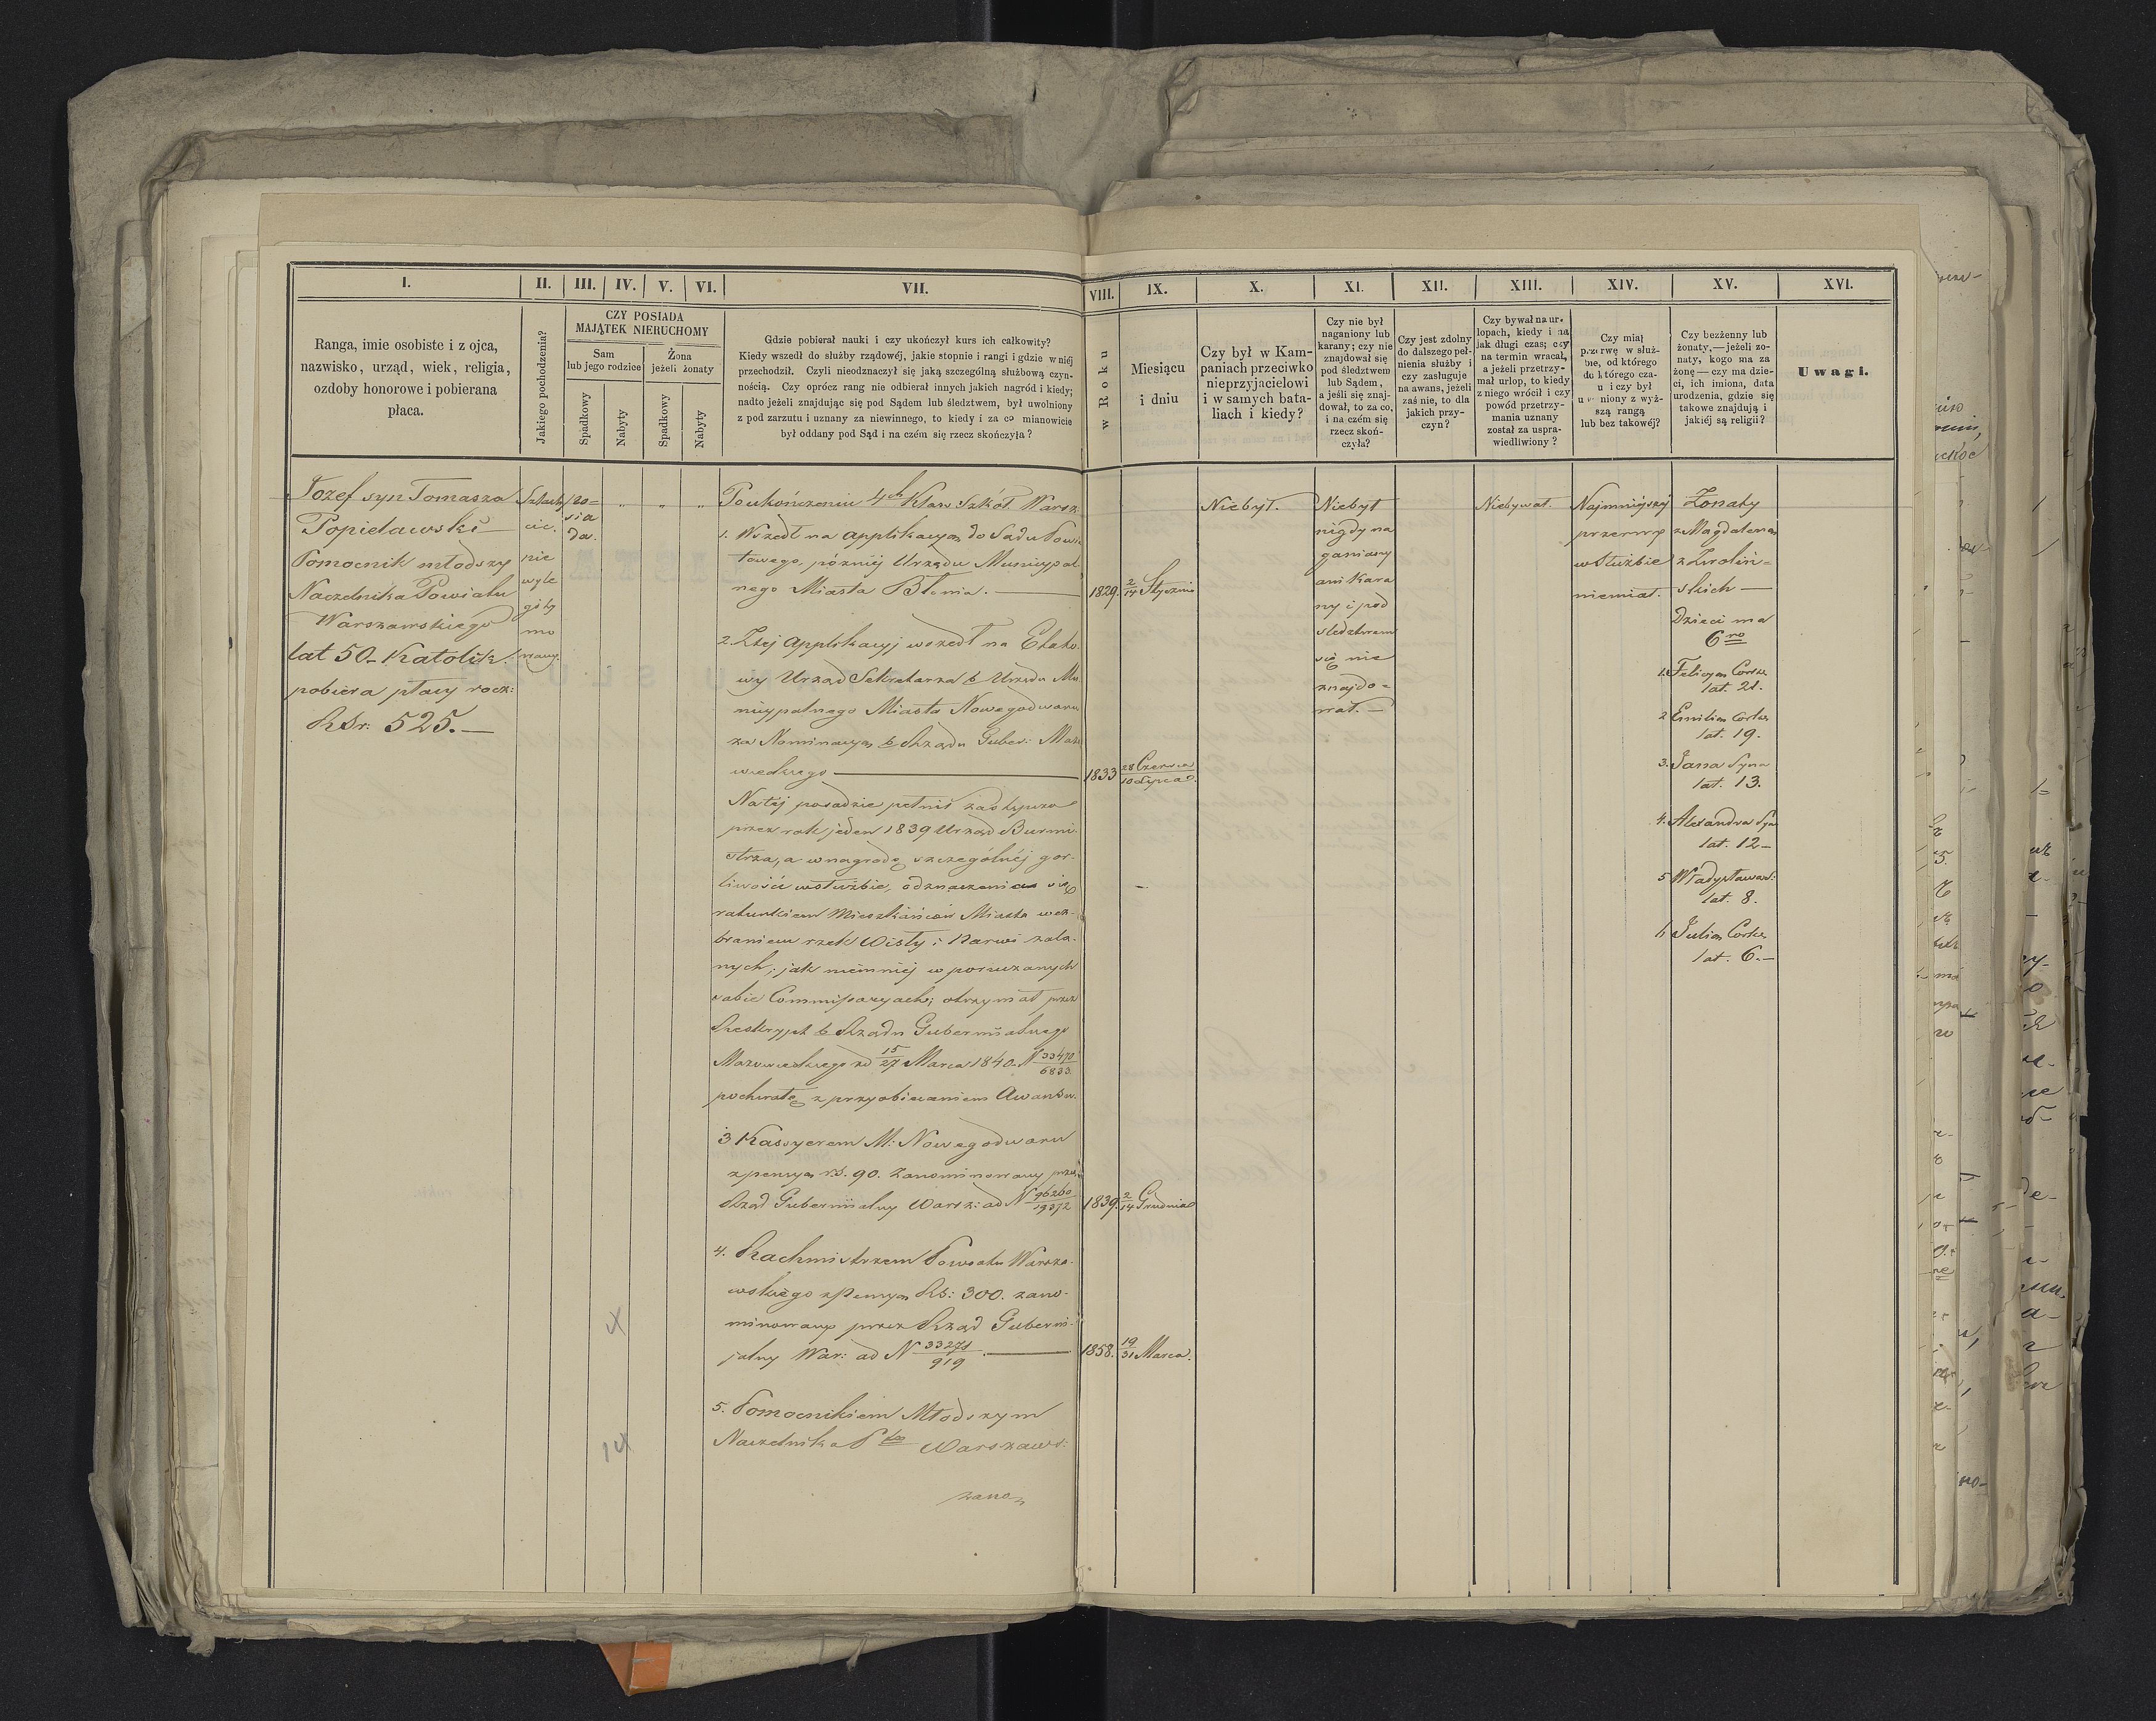 I.
II.
III.
IV.
V.
VI.
VII.
VIII.
IX.
X.
XI.
XII.
XIII.
XIV.
XV.
XVI.
Ranga, imie osobiste i z ojca,
nazwisko, urząd, wiek, religia,
ozdoby honorowe i pobierana
płaca.
Jakiego pochodzenia?
CZY POSIADA
MAJĄTEK NIERUCHOMY
Sam
lub jego rodzice
Żona
jeżeli żonaty
Spadkowy
Nabyty
Spadkowy
Nabyty
Gdzie pobierał nauki i czy ukończył kurs ich całkowity?
Kiedy wszedł do służby rządowéj, jakie stopnie i rangi i gdzie w niéj
przechodził. Czyli nieodznaczył się jaką szczególną służbową czyn-
nością. Czy oprócz rang nie odbierał innych jakich nagród i kiedy;
nadto jeżeli znajdując się pod Sądem lub śledztwem, był uwolniony
z pod zarzutu i uznany za niewinnego, to kiedy i za co mianowicie
był oddany pod Sąd i na czém się rzecz skończyła?
w Roku
Miesiącu
i dniu
Czy był w Kam-
paniach przeciwko
nieprzyjacielowi
i w samych bata-
liach i kiedy?
Czy nie był
naganiony lub
karany; czy nie
znajdował się
pod śledztwem
lub Sądem,
a jeśli się znaj-
dował, to za co,
i na czém się
rzecz skoń-
czyła?
Czy jest zdolny
do dalszego peł-
nienia służby i
czy zasługuje
na awans, jeżeli
zaś nie, to dla
jakich przy-
czyn?
Czy bywał na ur-
lopach, kiedy i na
jak długi czas; czy
na termin wracał,
a jeżeli przetrzy-
mał urlop, to kiedy
z niego wrócił i czy
powód przetrzy-
mania uznany
został za uspra-
wiedliwiony?
Czy miał
przerwę w służ-
bie, od którego
do którego cza-
u i czy był
u niony z wyż-
szą rangą
lub bez takowéj?
Czy bezżenny lub
żonaty,—jeżeli żo-
naty, kogo ma za
żonę—czy ma dzie-
ci, ich imiona, data
urodzenia, gdzie się
takowe znajdują i
jakiéj są religii?
Uwagi.
Józef syn Tomasza
Popielawski
Pomocnik młodszy
Naczelnika Powiatu
Warszawskiego
lat 50 - Katolik.
pobiera płacy rocz:
RSr: 525.—
Szlach
cic.
nie
wyle
gity
mo
wany.
Po-
sia
da.
" " "
Po ukończeniu 4ch Klass Szkół Warsz
1. Wszedł na applikacyą do Sądu Powia
towego, późniéj Urzędu Municypal
nego Miasta Błonia.
1829. 2/14 Stycznia
2. Z téj applikacyj wszedł na Etato
wy Urząd Sekretarza b Urzędu Mu
nicypalnego Miasta Nowegodworu
za Nominacyą b Rządu Guber: Mazo
wieckiego
1833 28 Czerwca/10 Lipca
Na téj posadzie pełnił zastępczo
przez rok jeden 1839 Urząd Burmi-
strza, a w nagrodę szczególnéj gor-
liwości w służbie, odznaczenia się
ratunkiem Mieszkańców Miasta wez-
braniem rzek Wisły i Narwi zala-
nych, jak niemniéj w poruczanych
sobie Commissyach; otrzymał przez
Reskrypt b Rządu Gubernialnego
Mazowieckiego zd 15/27 Marca 1840. N 33470/6833
pochwałę z przyobiecaniem Awansu.
3 Kassyerem M: Nowegodworu
z pensyą rs. 90. zanominowany przez
Rząd Gubernialny Warsz: ad N 96260/19372
1839. 2/14 Grudnia
4. Rachmistrzem Powiatu Warsza-
wskiego z Pensyą Rs: 300. zano-
minowany przez Rząd Guberni-
jalny War: ad N 33271/919
1858. 19/31 Marca.
5. Pomocnikiem Młodszym
Naczelnika Ptu Warszaws:
zano-
Niebył.
Niebył
nigdy na
ganiany
ani Kara
ny i pod
śledztwem
się nie
znajdo-
wał.—
Niebywał.
Najmniejszéj
przerwy
w służbie
niemiał.
Żonaty
z Magdaleną
z Zwoliń-
skich
Dzieci ma
6ro
1. Felicyą Corkę
lat. 21.
2 Emilią Corkę
lat. 19.
3. Jana Syna
lat. 13.
4. Alexandra Syn
lat. 12—
5 Władysława S:
lat. 8.
6 Julią Corkę
lat. 6.—